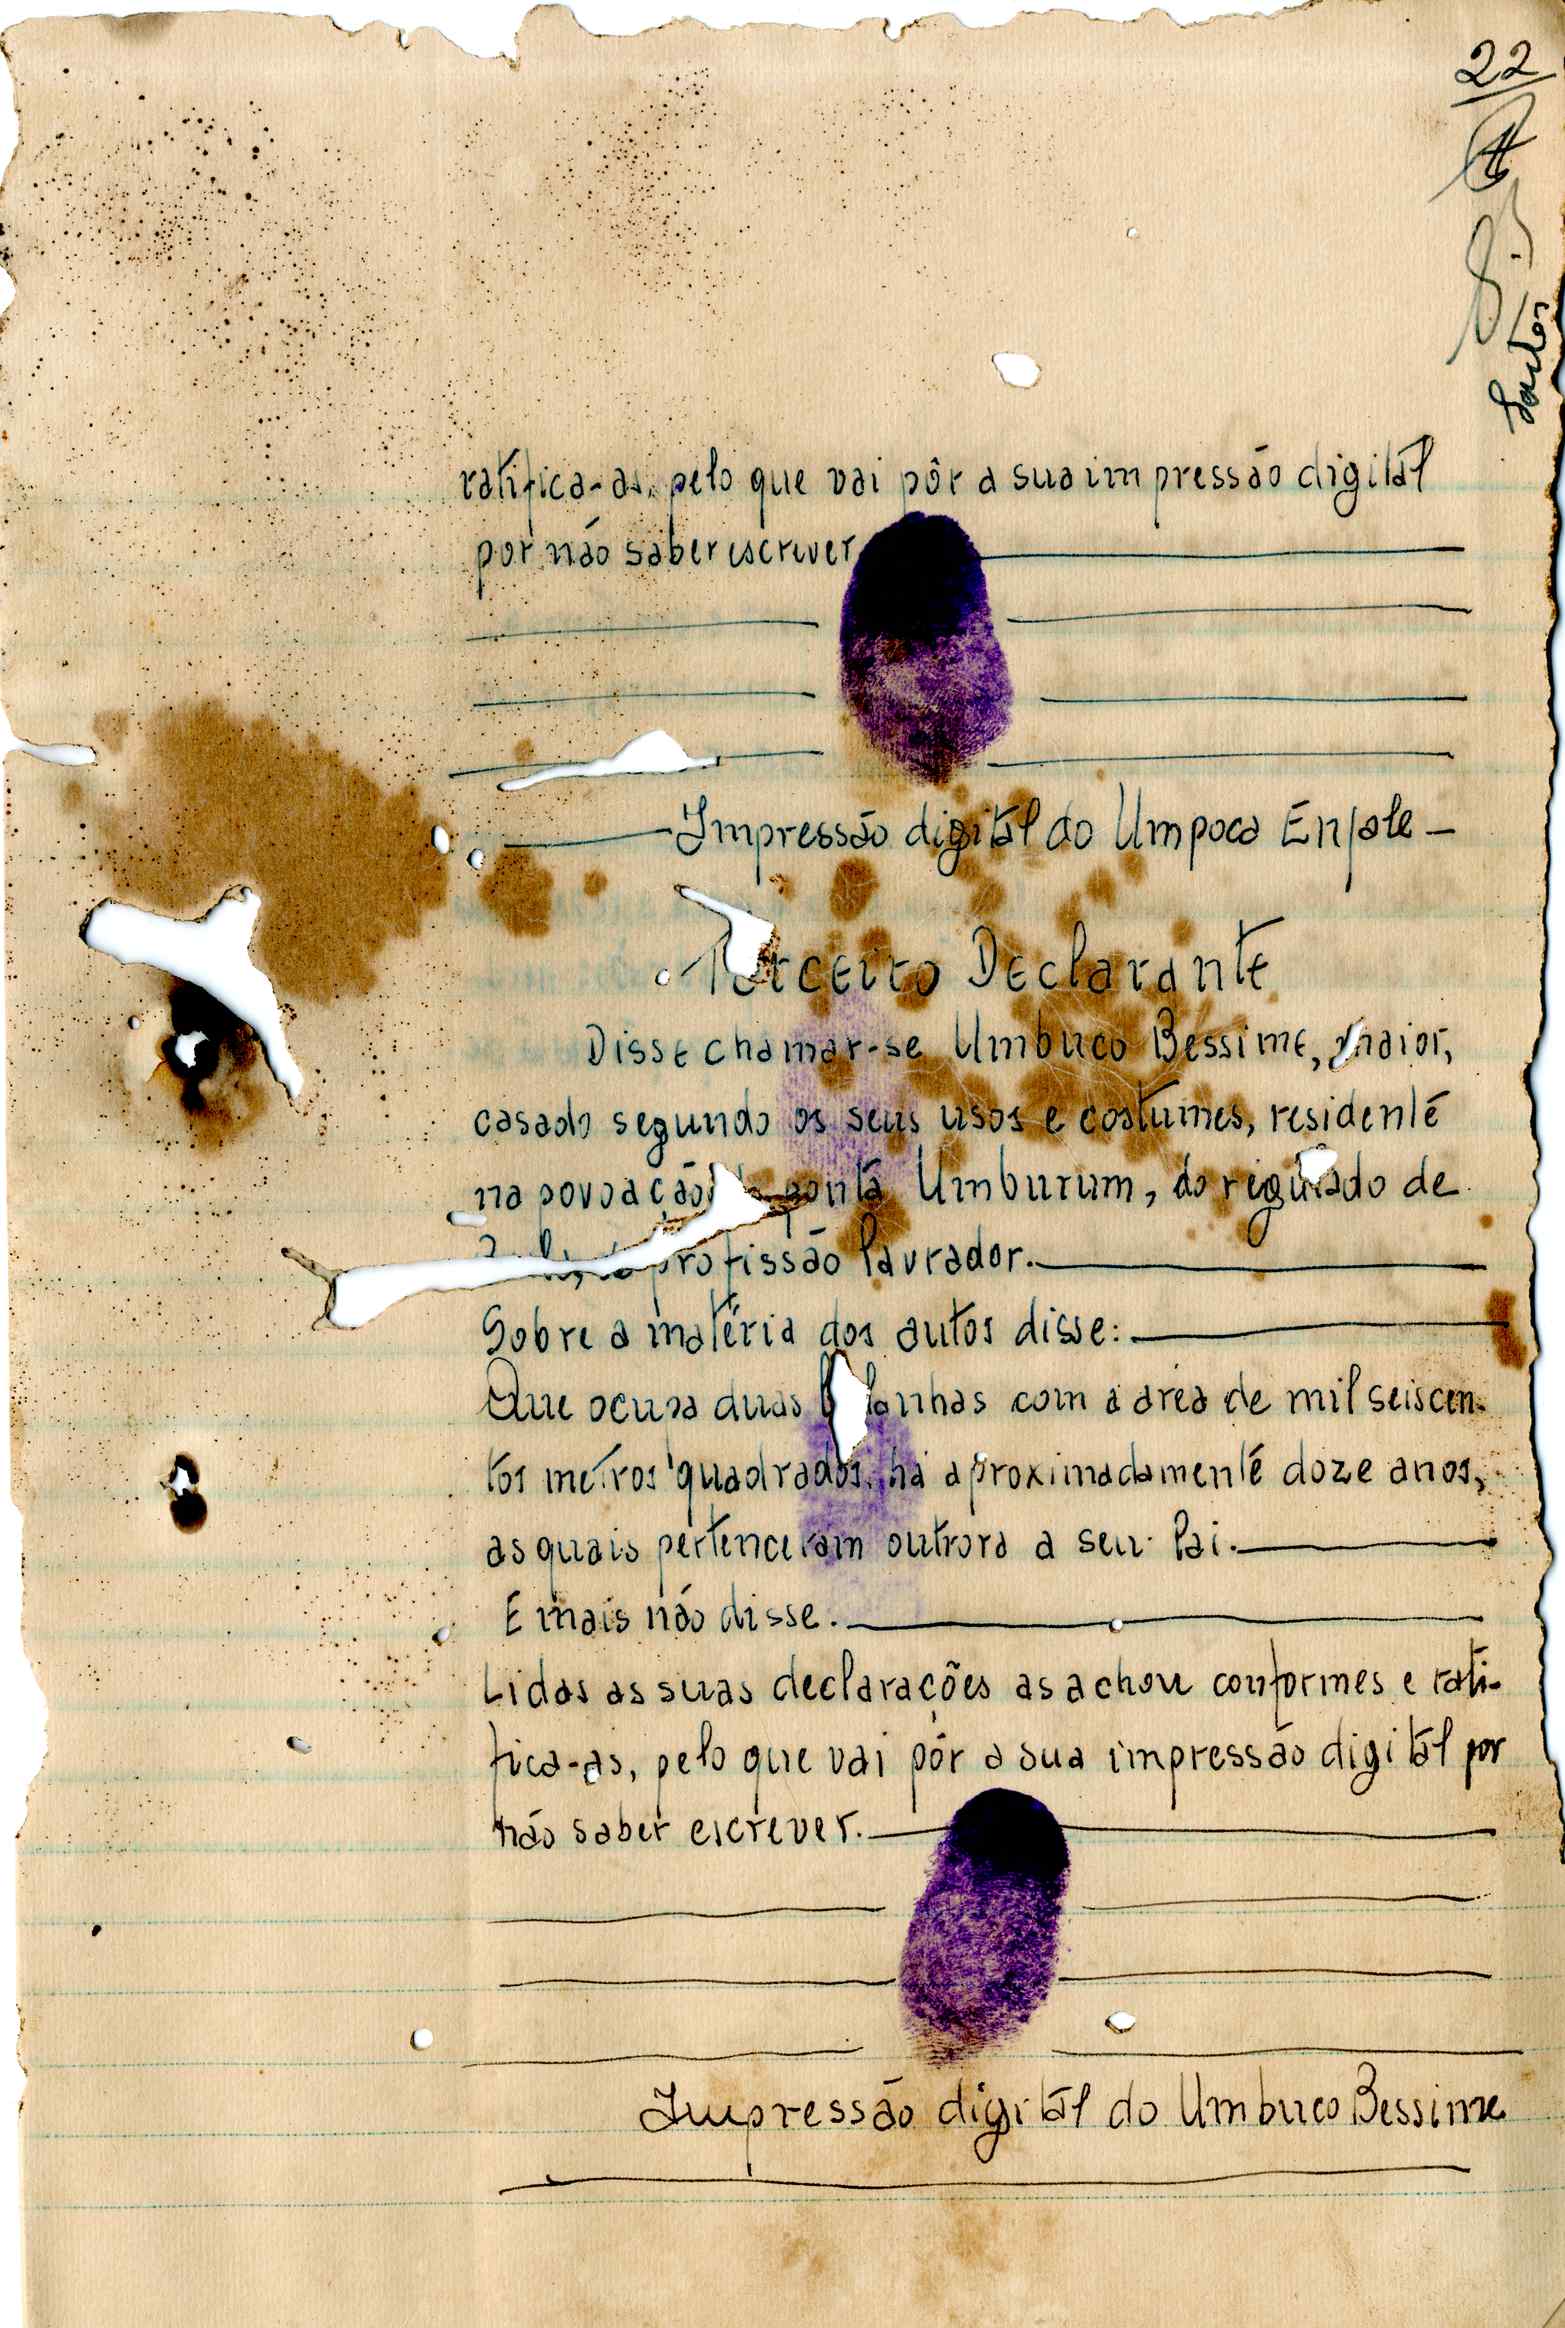 22
Santos
ratifica-as, pelo que vai pôr a sua impressão digitál
por não saber escrever
Impressão digitál do Umpoca Enjale —
Terceiro Declarante
Disse chamar-se Umbuco Bessime, maior,
casado segundo os seus usos e costumes, residenté
na povoação de pontá Umburum, do regulado de
profissão lavrador.
Sobre a matéria dos autos disse:
Que ocupa duas bolanhas com a área de mil seiscen-
tos metros quadrados, há aproximadamenté doze anos,
as quais pertenceram outrora a seu Pai.
E mais não disse.
Lidas as suas declarações as achou conformes e rati-
fica-as, pelo que vai pôr a sua impressão digitál por
não saber escrever.
Impressão digitál do Umbuco Bessime